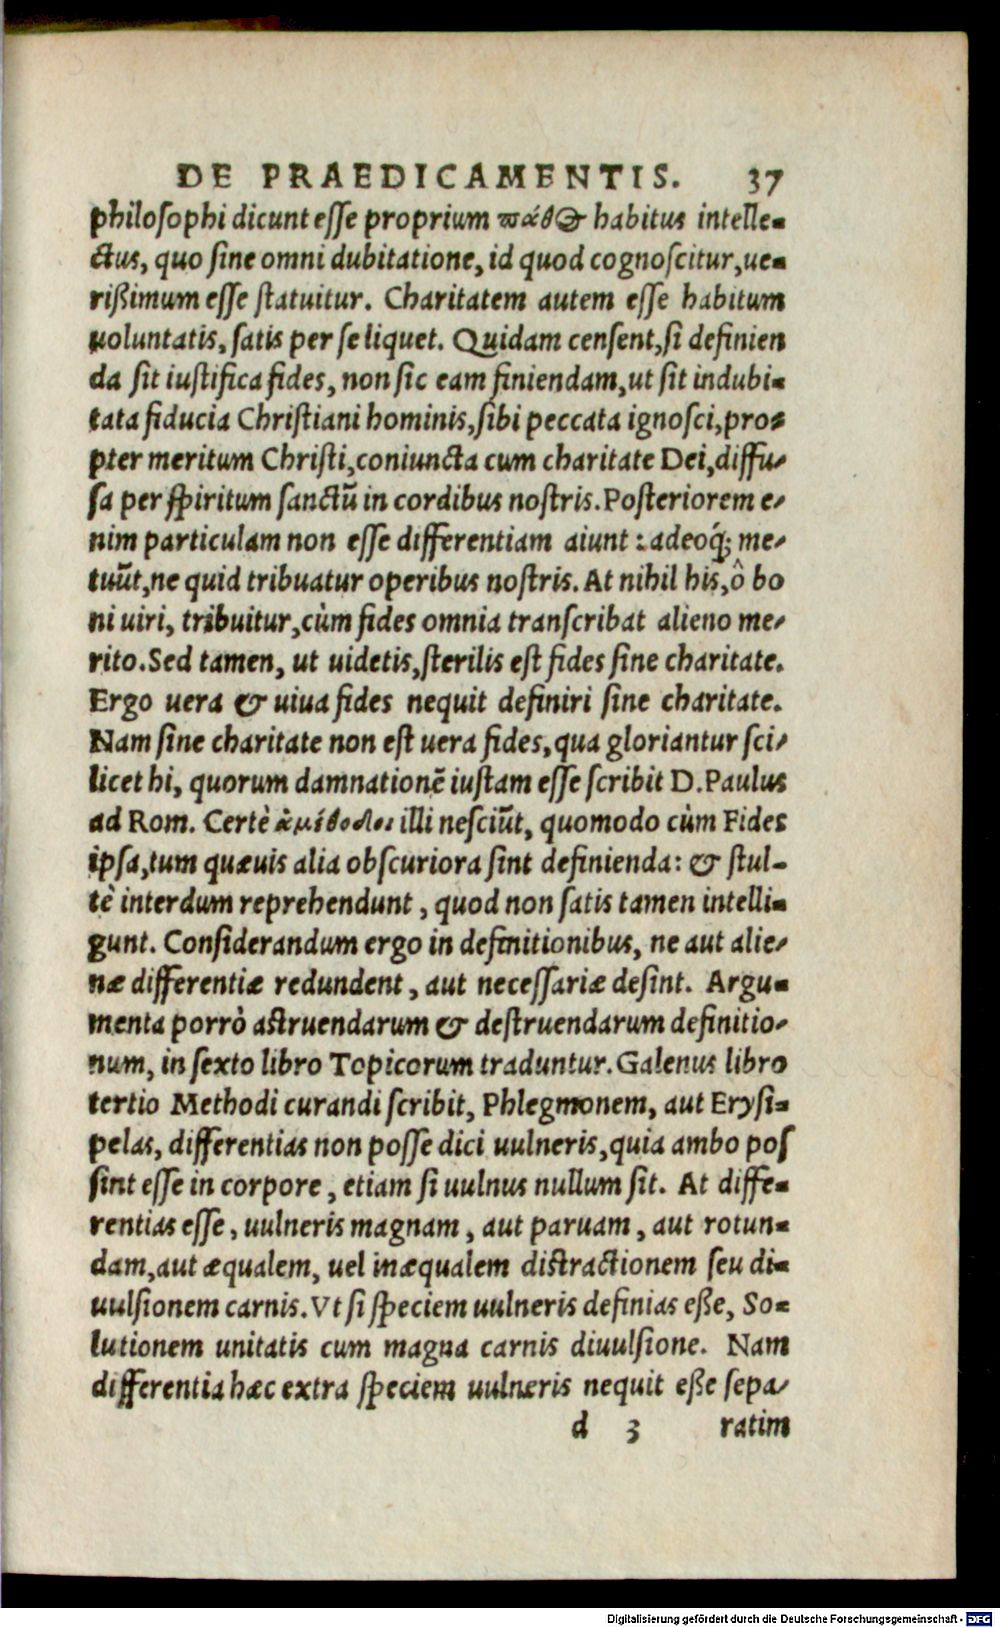 DE PRAEDICAMENTIS. 37
philosophi dicunt esse proprium πάθος habitus intelle-
ctus, quo sine omni dubitatione, id quod cognoscitur, ue-
rißimum esse statuitur. Charitatem autem esse habitum
uoluntatis, satis per se liquet. Quidam censent, si definien
da sit iustifica fides, non sic eam finiendam, ut sit indubi-
tata fiducia Christiani hominis, sibi peccata ignosci, pro-
pter meritum Christi, coniuncta cum charitate Dei, diffu-
sa per spiritum sanctũ in cordibus nostris. Posteriorem e-
nim particulam non esse differentiam aiunt: adeoq́; me-
tuũt, ne quid tribuatur operibus nostris. At nihil his, ô bo
ni uiri, tribuitur, cùm fides omnia transcribat alieno me-
rito. Sed tamen, ut uidetis, sterilis est fides sine charitate.
Ergo uera & uiua fides nequit definiri sine charitate.
Nam sine charitate non est uera fides, qua gloriantur sci-
licet hi, quorum damnationẽ iustam esse scribit D. Paulus
ad Rom. Certè ἀμέθοδοι illi nesciũt, quomodo cùm Fides
ipsa, tum quæuis alia obscuriora sint definienda: & stul-
tè interdum reprehendunt, quod non satis tamen intelli-
gunt. Considerandum ergo in definitionibus, ne aut alie-
næ differentiæ redundent, aut necessariæ desint. Argu-
menta porrò astruendarum & destruendarum definitio-
num, in sexto libro Topicorum traduntur. Galenus libro
tertio Methodi curandi scribit, Phlegmonem, aut Erysi-
pelas, differentias non posse dici uulneris, quia ambo pos
sint esse in corpore, etiam si uulnus nullum sit. At diffe-
rentias esse, uulneris magnam, aut paruam, aut rotun-
dam, aut æqualem, uel inæqualem distractionem seu di-
uulsionem carnis. Vt si speciem uulneris definias eße, So-
lutionem unitatis cum magna carnis diuulsione. Nam
differentia hæc extra speciem uulneris nequit eße sepa-
d 3 ratim
Digitalisierung gefördert durch die Deutsche Forschungsgemeinschaft - DFG